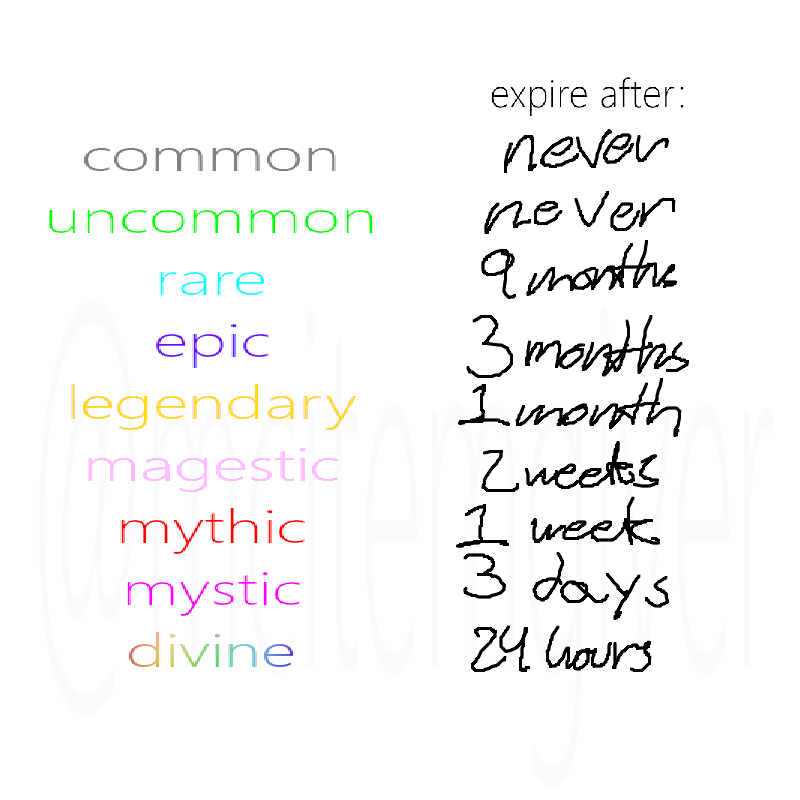 expire after:
common never
uncommon never
rare 9 months
epic 3 months
legendary 1 month
magestic 2 weeks
mythic 1 week
mystic 3 days
divine 24 hours